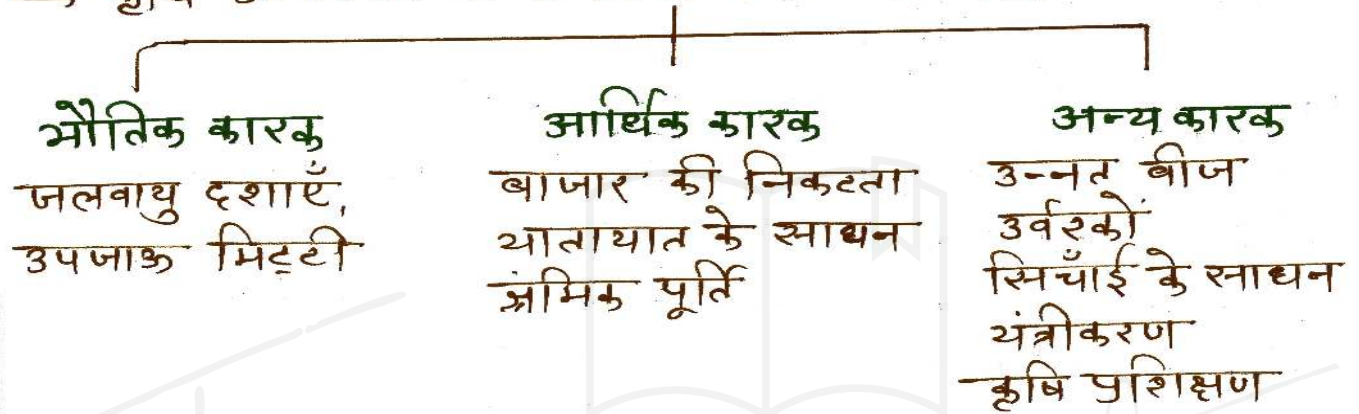 कृषि
भौतिक कारक
जलवायु दशाएँ,
उपजाऊ मिट्टी
आर्थिक कारक
बाजार की निकटता
यातायात के साधन
श्रमिक पूर्ति
अन्य कारक
उन्नत बीज
उर्वरकों
सिचाँई के साधन
यंत्रीकरण
कृषि प्रशिक्षण